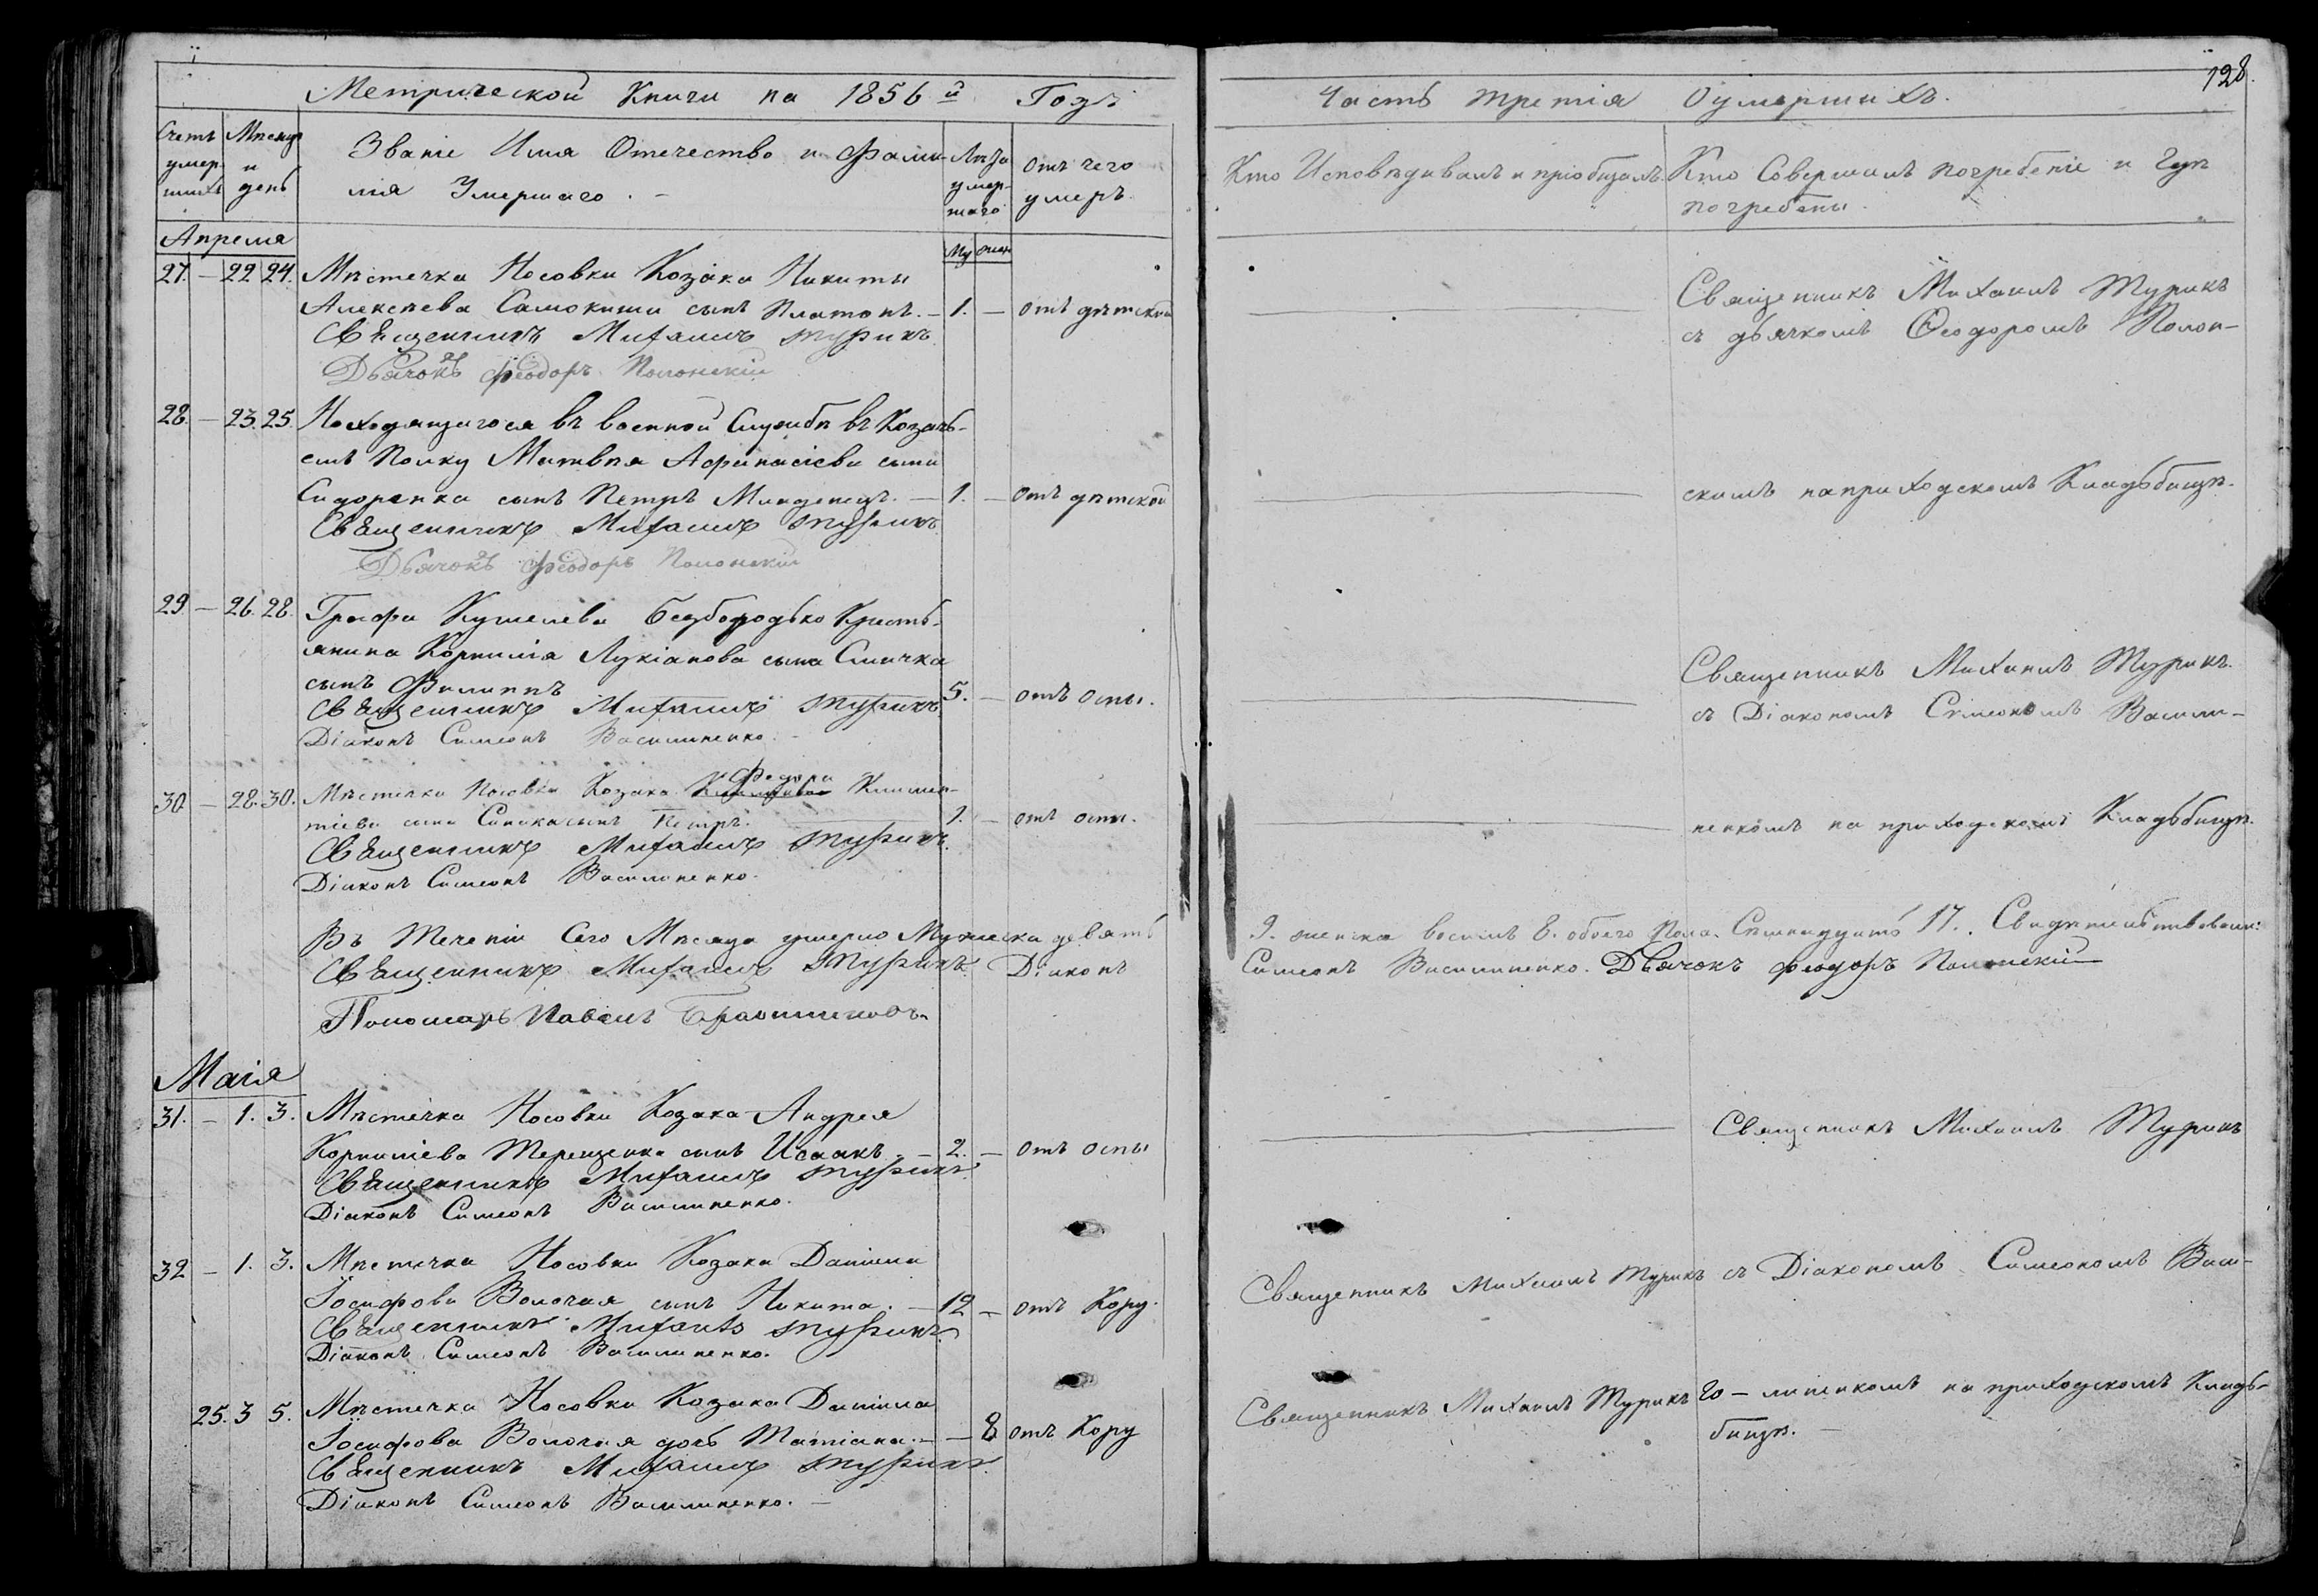 Метрической Книги на 1856й Годъ
Счетъ умершихъ
Мѣсяцъ и день
Званіе Имя Отечество и Фами-
лія Умершаго. –
Лѣта умер-
шаго
Отъ чего
умеръ.
Апреля
Му
жен
27. – 22 24. Мѣстечка Носовки Козака Никиты
Алексѣева Самокиши сынъ Платонъ. – 1. – отъ дѣтской
Священникъ Михаилъ Турикъ
Дьячокъ Феодоръ Полонскій
28. – 23. 25. Находящагося въ военной Службѣ въ Козачь-
емъ Полку Матвѣя Афанасіева сына
Сидоренка сынъ Петръ Младенецъ. – 1. – отъ дѣтской
Священникъ Михаилъ Турикъ
Дьячокъ Феодоръ Полонскій
29 – 26. 28. Графа Кушелева Безбородько Кресть-
янина Корнилія Лукіанова сына Смичка
сынъ Филиппъ 5. – отъ оспы.
Священникъ Михаилъ Турикъ
Діаконъ Симеонъ Василиненко. –
Федора
30. – 28. 30. Мѣстечка Носовки Козака Климен-
тіева сына Синяка сынъ Петръ. 1. – отъ оспы.
Священникъ Михаилъ Турикъ
Діаконъ Симеонъ Василиненко.
Въ Теченіи Сего Мѣсяца умерло Мужеска девять
Священникъ Михаилъ Турикъ. Діаконъ
Пономарь Павелъ
Маія
31. – 1. 3. Мѣстечка Носовки Козака Андрея
Корниліева Терещенка сынъ Исаакъ. – 2. – отъ оспы
Священникъ Михаилъ Турикъ
Діаконъ Симеонъ Василиненко.
32 – 1. 3. Мѣстечка Носовки Козака Даніила
Іосифова Волочая сынъ Никита. – 12 – отъ Кору.
Священникъ Михаилъ Турикъ
Діаконъ Симеонъ Василиненко.
25. 3 5. Мѣстечка Носовки Козака Даніила
Іосифова Волочая дочь Татіана. – – 8 отъ Кору
Священникъ Михаилъ Турикъ
Діаконъ Симеонъ Василиненко. –
128.
Часть третія О умершихъ.
Кто Исповѣдивалъ и пріобщалъ.
Кто Совершалъ погребеніе и Гдѣ
погребены.
Священникъ Михаилъ Турикъ
съ дьячкомъ Феодоромъ Полон-
скимъ на приходскомъ Кладьбищѣ.
Священникъ Михаилъ Турикъ
съ Діакономъ Симеономъ Васили-
ненкомъ на приходскомъ Кладьбищѣ.
9. женска восемь 8. обоего Пола. Семнадцать 17. Свидѣтельствовали:
Симеонъ Василиненко. Дьячокъ Феодоръ Полонскій
Священникъ Михаилъ Турикъ
Священникъ Михаилъ Турикъ съ Діакономъ Симеономъ Васи-
Священникъ Михаилъ Турикъ – линенкомъ на приходскомъ Кладь-
бищѣ. –